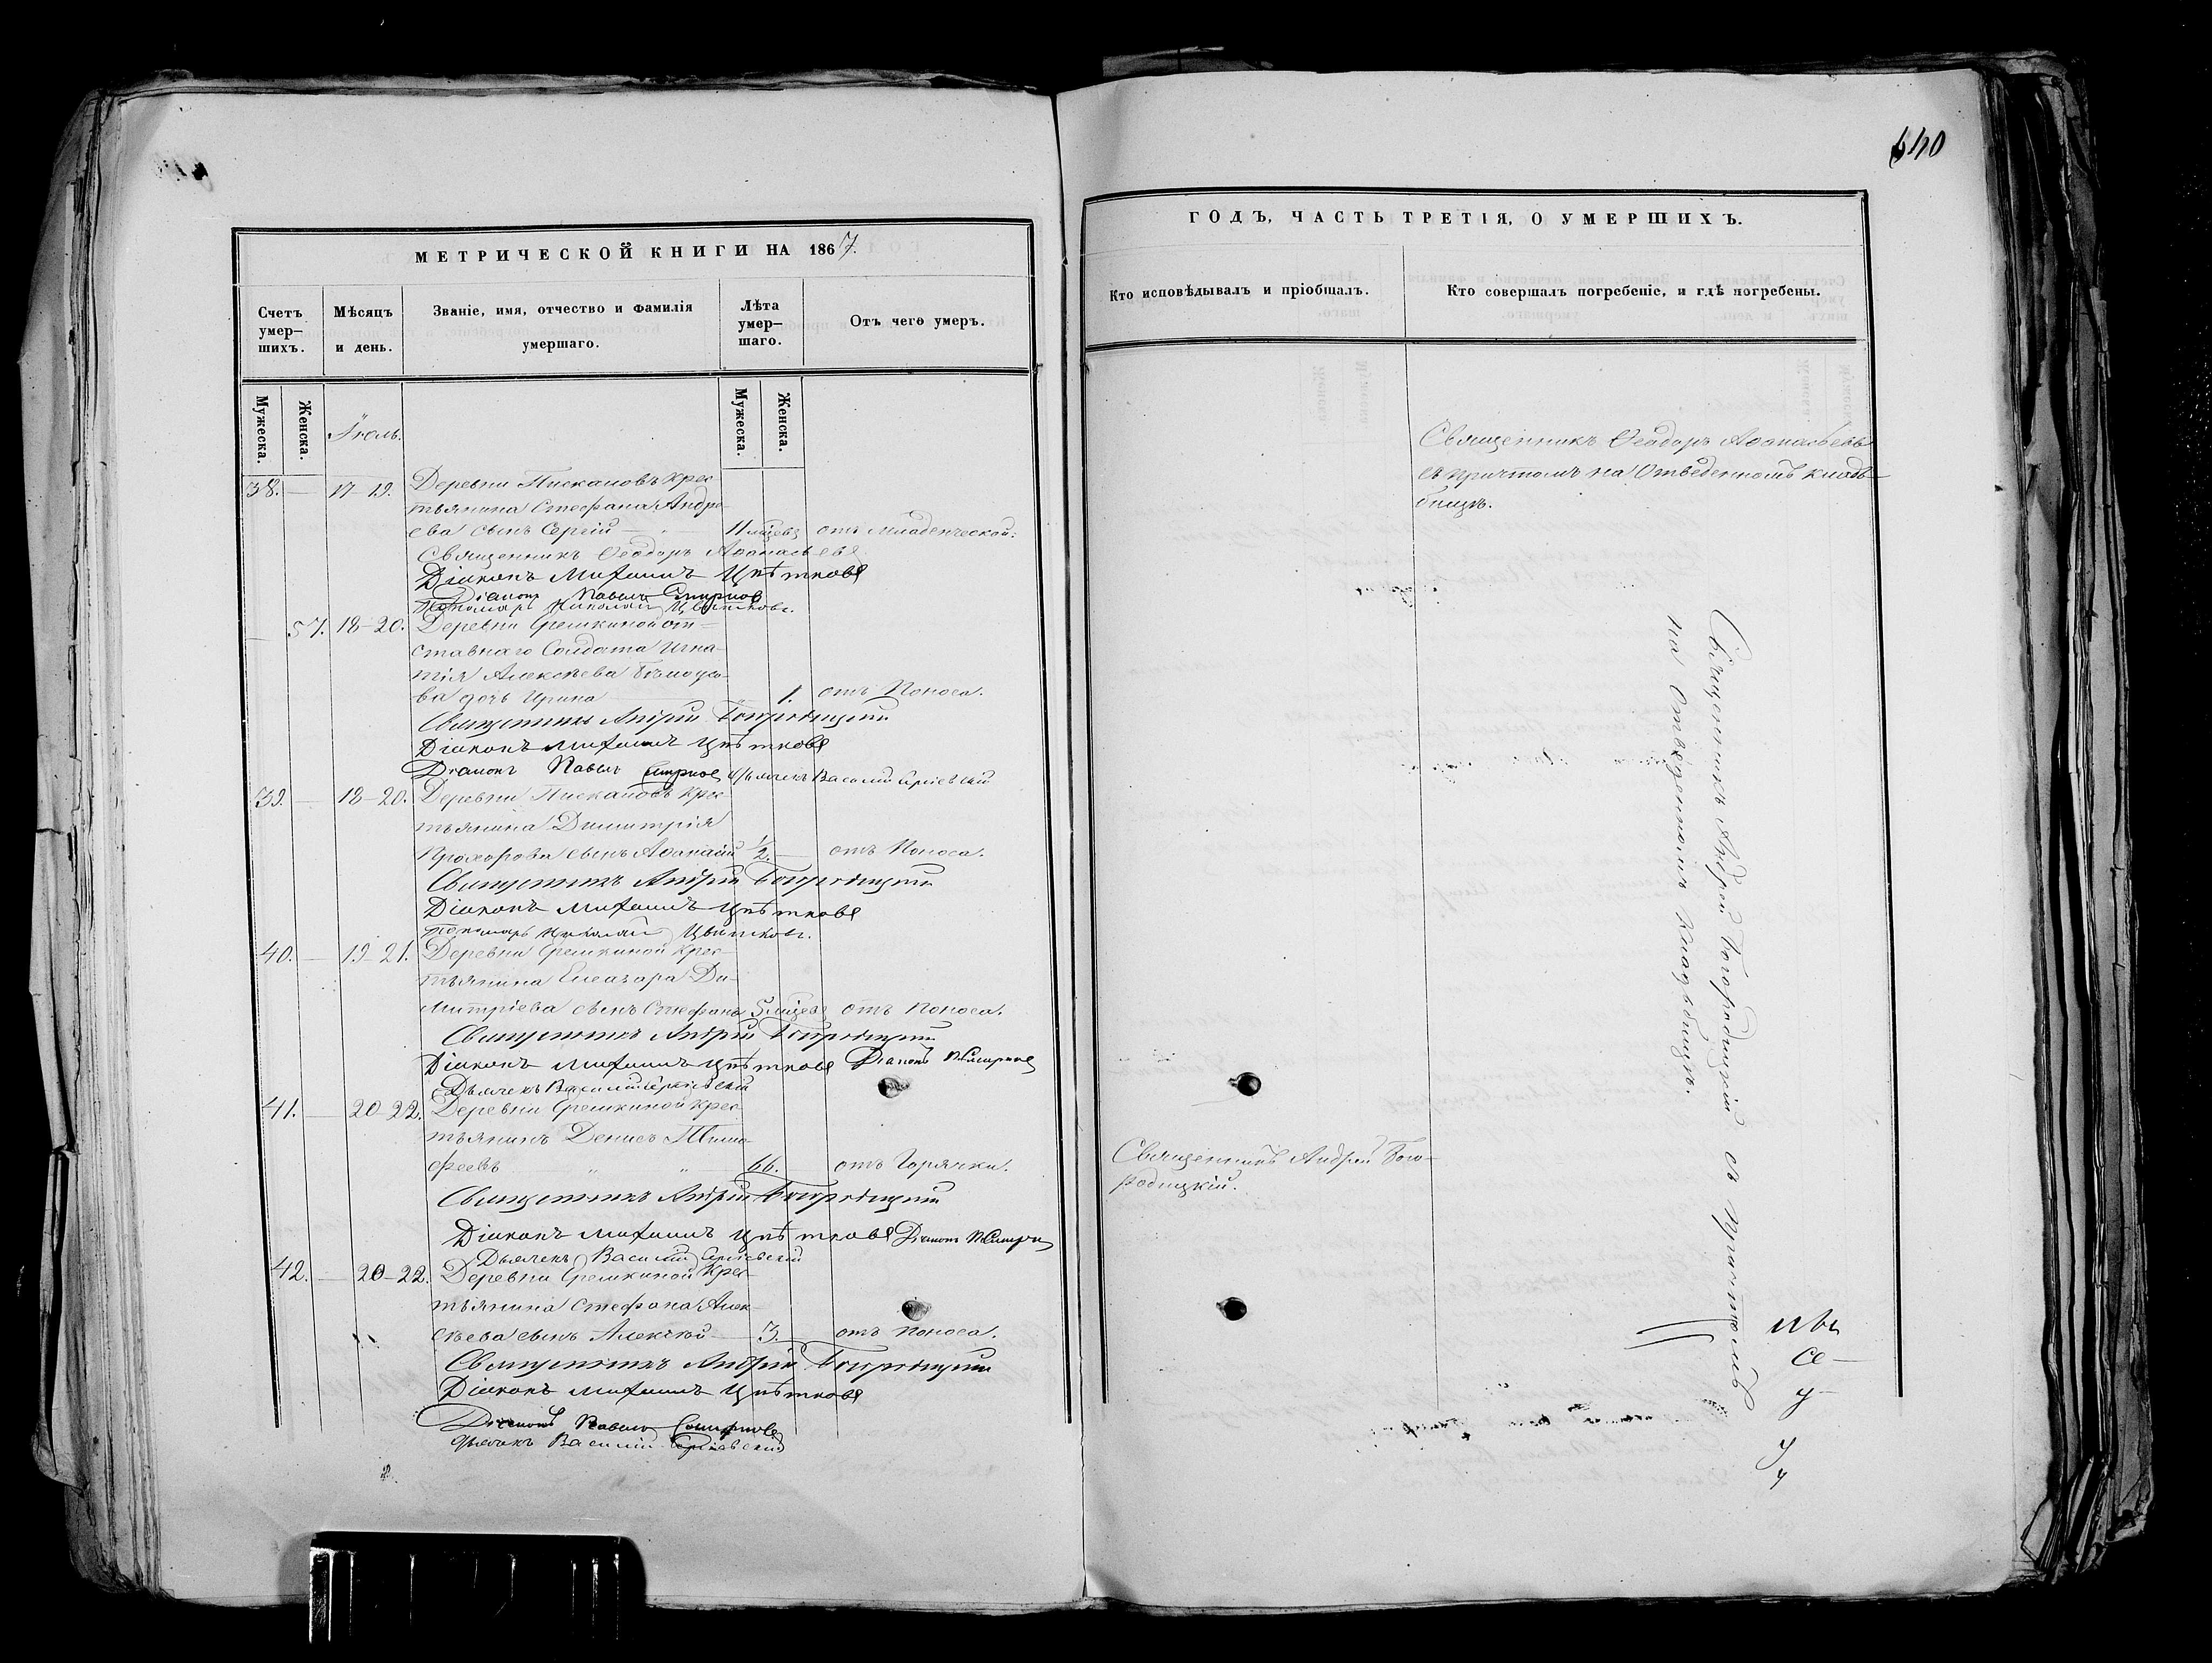 МЕТРИЧЕСКОЙ КНИГИ НА 1867.
Счетъ умер-шихъ.
Мѣсяцъ и день.
Званіе, имя, отчество и фамилія умершаго.
Лѣта умер-шаго.
Отъ чего умеръ.
Мужеска. Женска.
Іюль.
Мужеска. Женска.
38. — 17-19. Деревни Пискановъ крес
тьянина Стефана Андре
ева сынъ Сергій — 11 мѣцевъ отъ младенческой.
Священникъ Ѳеодоръ Аѳанасьевъ
Діаконъ Михаилъ Цвѣтковъ
Діаконъ Павелъ Смирновъ
Пономарь Николай Цвѣтковъ.
— 57. 18-20. Деревни Грешкиной от-
ставнаго Солдата Игна-
тія Алексѣева
ва дочь Ирина 1. отъ Поноса.
Священникъ Андрей Богородицкій
Діаконъ Михаилъ Цвѣтковъ
Діаконъ Павелъ Смирновъ Дьячекъ Василій Сергіевскій
39. — 18-20. Деревни Пискановъ крес
тьянина Димитрія
Прохорова сынъ Аѳанасій 1/2. — отъ Поноса.
Священникъ Андрей Богородицкій
Діаконъ Михаилъ Цвѣтковъ
Пономарь Николай Цвѣтковъ.
40. — 19-21. Деревни Грешкиной крес-
тьянина Елеазара Ди-
митріева сынъ Стефанъ 5 мѣцевъ отъ Поноса.
Священникъ Андрей Богородицкій
Діаконъ Михаилъ Цвѣтковъ Діаконъ П. Смирновъ
Дьячекъ Василій Сергіевскій
41. — 20-22. Деревни Грешкиной крес
тьянинъ Денисъ Тимо-
феевъ „ „ 66. — отъ Горячки.
Священникъ Андрей Богородицкій
Діаконъ Михаилъ Цвѣтковъ Діаконъ П. Смирнов
Дьячекъ Василій Сергіевскій
42. — 20-22. Деревни Грешкиной крес-
тьянина Стефана Алек-
сѣева сынъ Алексѣй 3. — отъ поноса.
Священникъ Андрей Богородицкій
Діаконъ Михаилъ Цвѣтковъ
Діаконъ Павелъ Смирновъ
Дьячекъ Василій Сергіевскій
640
ГОДЪ, ЧАСТЬ ТРЕТІЯ, О УМЕРШИХЪ.
Кто исповѣдывалъ и пріобщалъ.
Кто совершалъ погребеніе, и гдѣ погребены.
Священникъ Ѳеодоръ Аѳанасьевъ
съ причтомъ на Отведенномъ кладъ-
бищѣ.
Священникъ Андрей Богородицкій съ Причтомъ
на Отведенномъ Кладбищѣ.
Священникъ Андрей Бого-
родицкій.